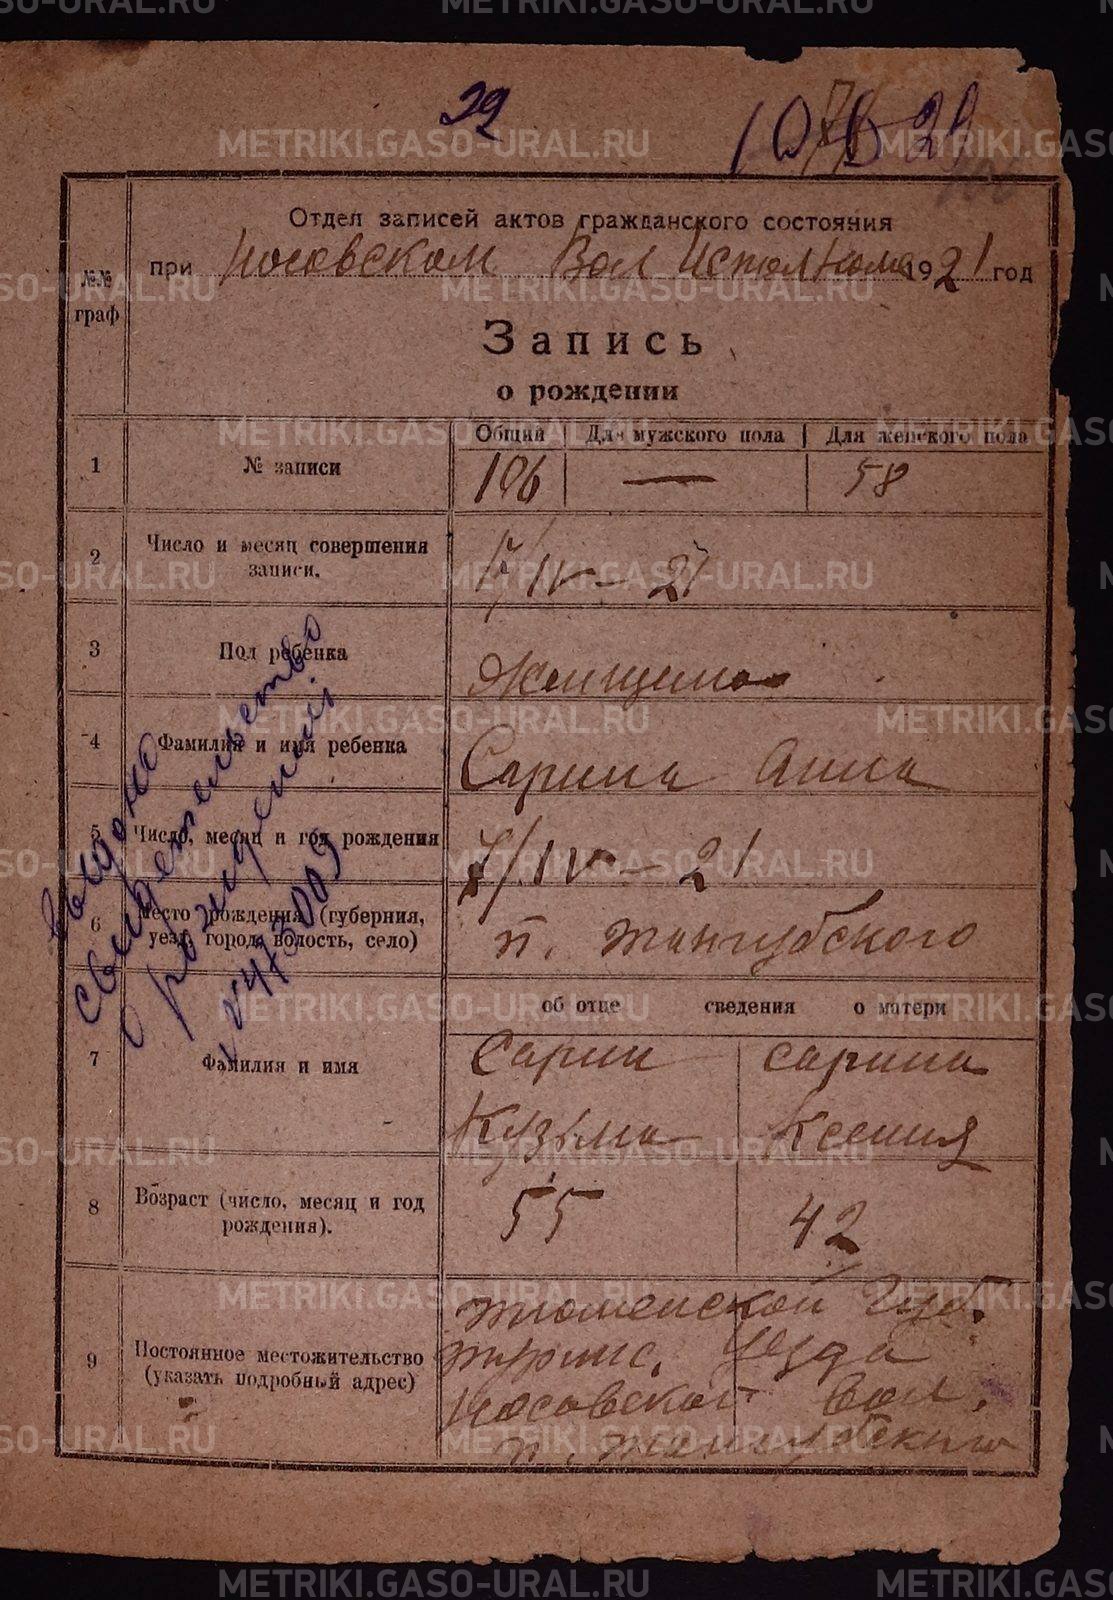 METRIKI.GASO-URAL.RU
22
Отдел записей актов гражданского состояния
при Носовском Вол Исполкоме 1921 год
№№ граф
Запись
о рождении
Общий Для мужского пола Для женского пола
1 № записи 106 — 58
2 Число и месяц совершения
записи. 7/IV – 21
3 Пол ребенка Женщина
4 Фамилия и имя ребенка Сарина Анна
5 Число, месяц и год рождения 7/IV – 21
6 Место рождения (губерния,
уезд, город, волость, село) п.
об отце сведения о матери
7 Фамилия и имя Сарин Сарина
Кузьма Ксения
8 Возраст (число, месяц и год
рождения). 55 42
9 Постоянное местожительство
(указать подробный адрес)
Тюменской Губ.
Туринс. Уезда
Носовской Вол.
п.
Выдано
свидетельство
о рождении